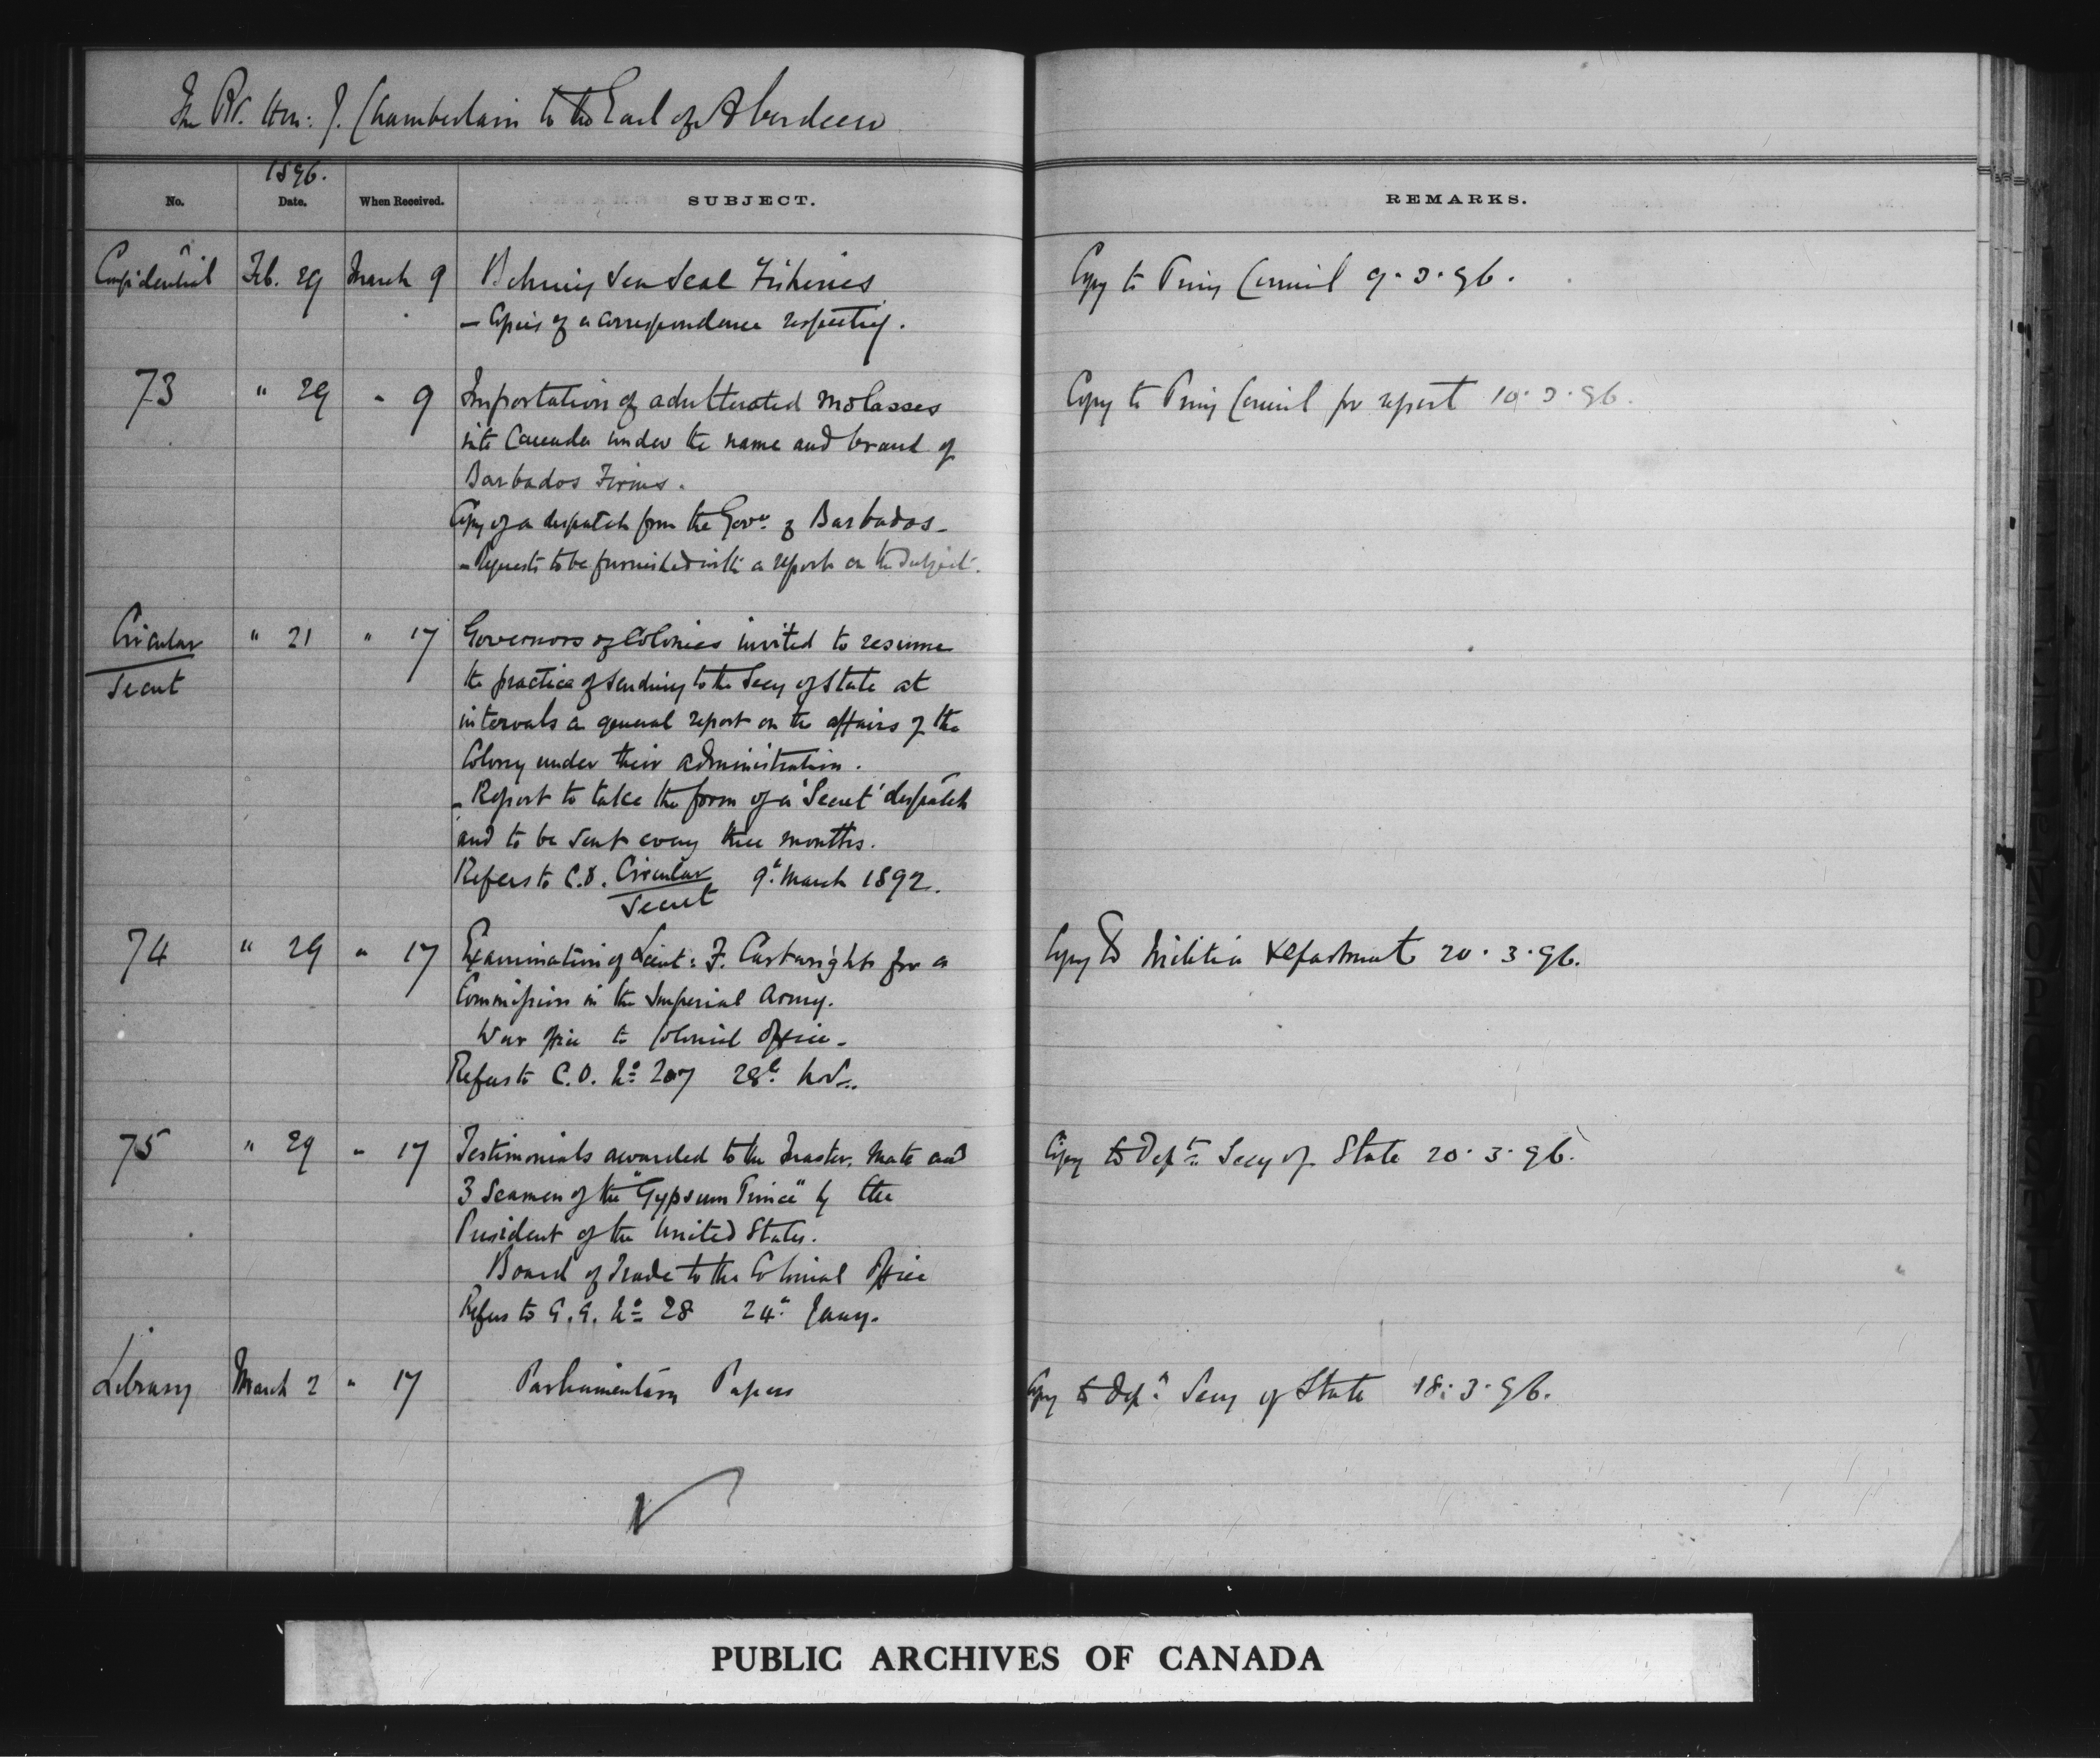 The Rt. Hon: J. Chamberlain to the Earl of Aberdeen
1896.
No. Date. When Received. SUBJECT. REMARKS.
Confidential Feb. 29 March 9 Behring Sea Seal Fisheries Copy to Privy Council 9.3.96.
- Copies of a correspondence respecting.
73 " 29 " 9 Importation of adulterated molasses Copy to Privy Council for report 10.3.96.
into Canada under the name and brand of
Barbados Firms.
Copy of a despatch from the Govr. of Barbados -
- Requests to be furnished with a report on the subject.
Circular " 21 " 17 Governors of Colonies invited to resume
Secret the practice of sending to the Secy of State at
intervals a general report on the affairs of the
Colony under their administration.
- Report to take the form of a 'Secret' despatch
and to be sent every three months.
Refers to C.O. Circular 9th March 1892.
Secret
74 " 29 " 17 Examination of Lieut: F. Cartwright for a Copy to Militia Department 20.3.96.
Commission in the Imperial Army.
War Office to Colonial Office -
Refers to C.O. No 207 28th Nov.
75 " 29 " 17 Testimonials awarded to the Master, Mate and Copy to Dept. Secy of State 20.3.96.
3 Seamen of the "Gypsum Prince" by the
President of the United States.
Board of Trade to the Colonial Office
Refers to G.G. No 28 24th Jany.
Library March 2 " 17 Parliamentary Papers Copy to Dept. Secy of State 18.3.96.
PUBLIC ARCHIVES OF CANADA